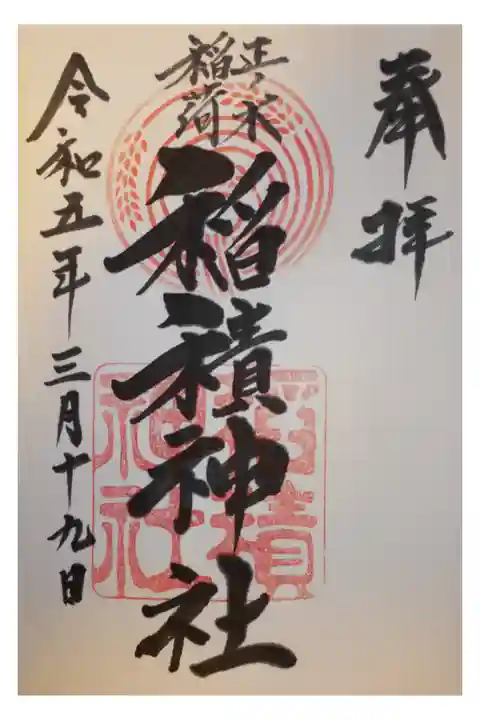 奉拝
正ノ木
稲荷
稲積神社
令和五年三月十九日
稲積
神社